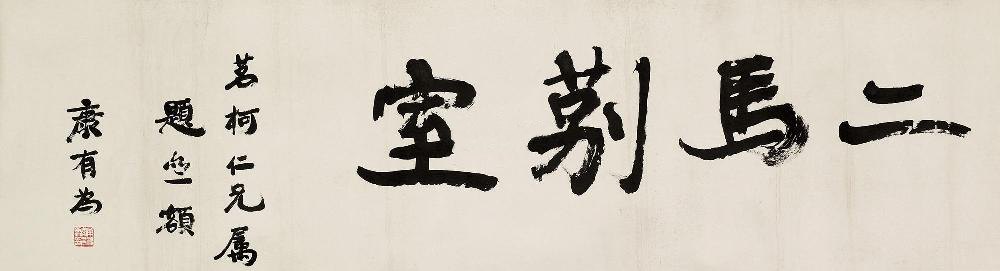 二馬莂室
茗柯仁兄属
題額
康有為